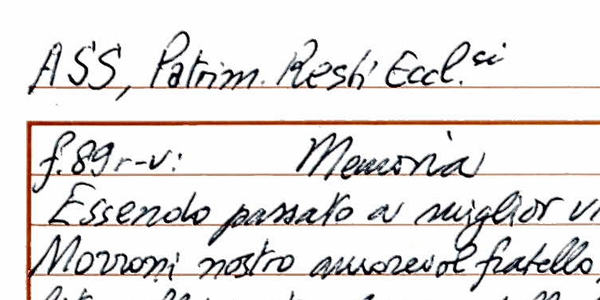 ASS, Patrim. Resti Eccl.ci
f. 89r-v: Memoria
Essendo passato a miglior
Morroni nostro amorevol fratello,